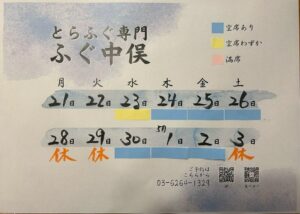 とらふぐ専門
ふぐ中俣
空席あり
空席わずか
満席
月 火 水 木 金 土
21日 22日 23日 24日 25日 26日
28日 29日 30日 5月1日 2日 3日
休 休 休
ご予約は
こちらから
03-6264-1329